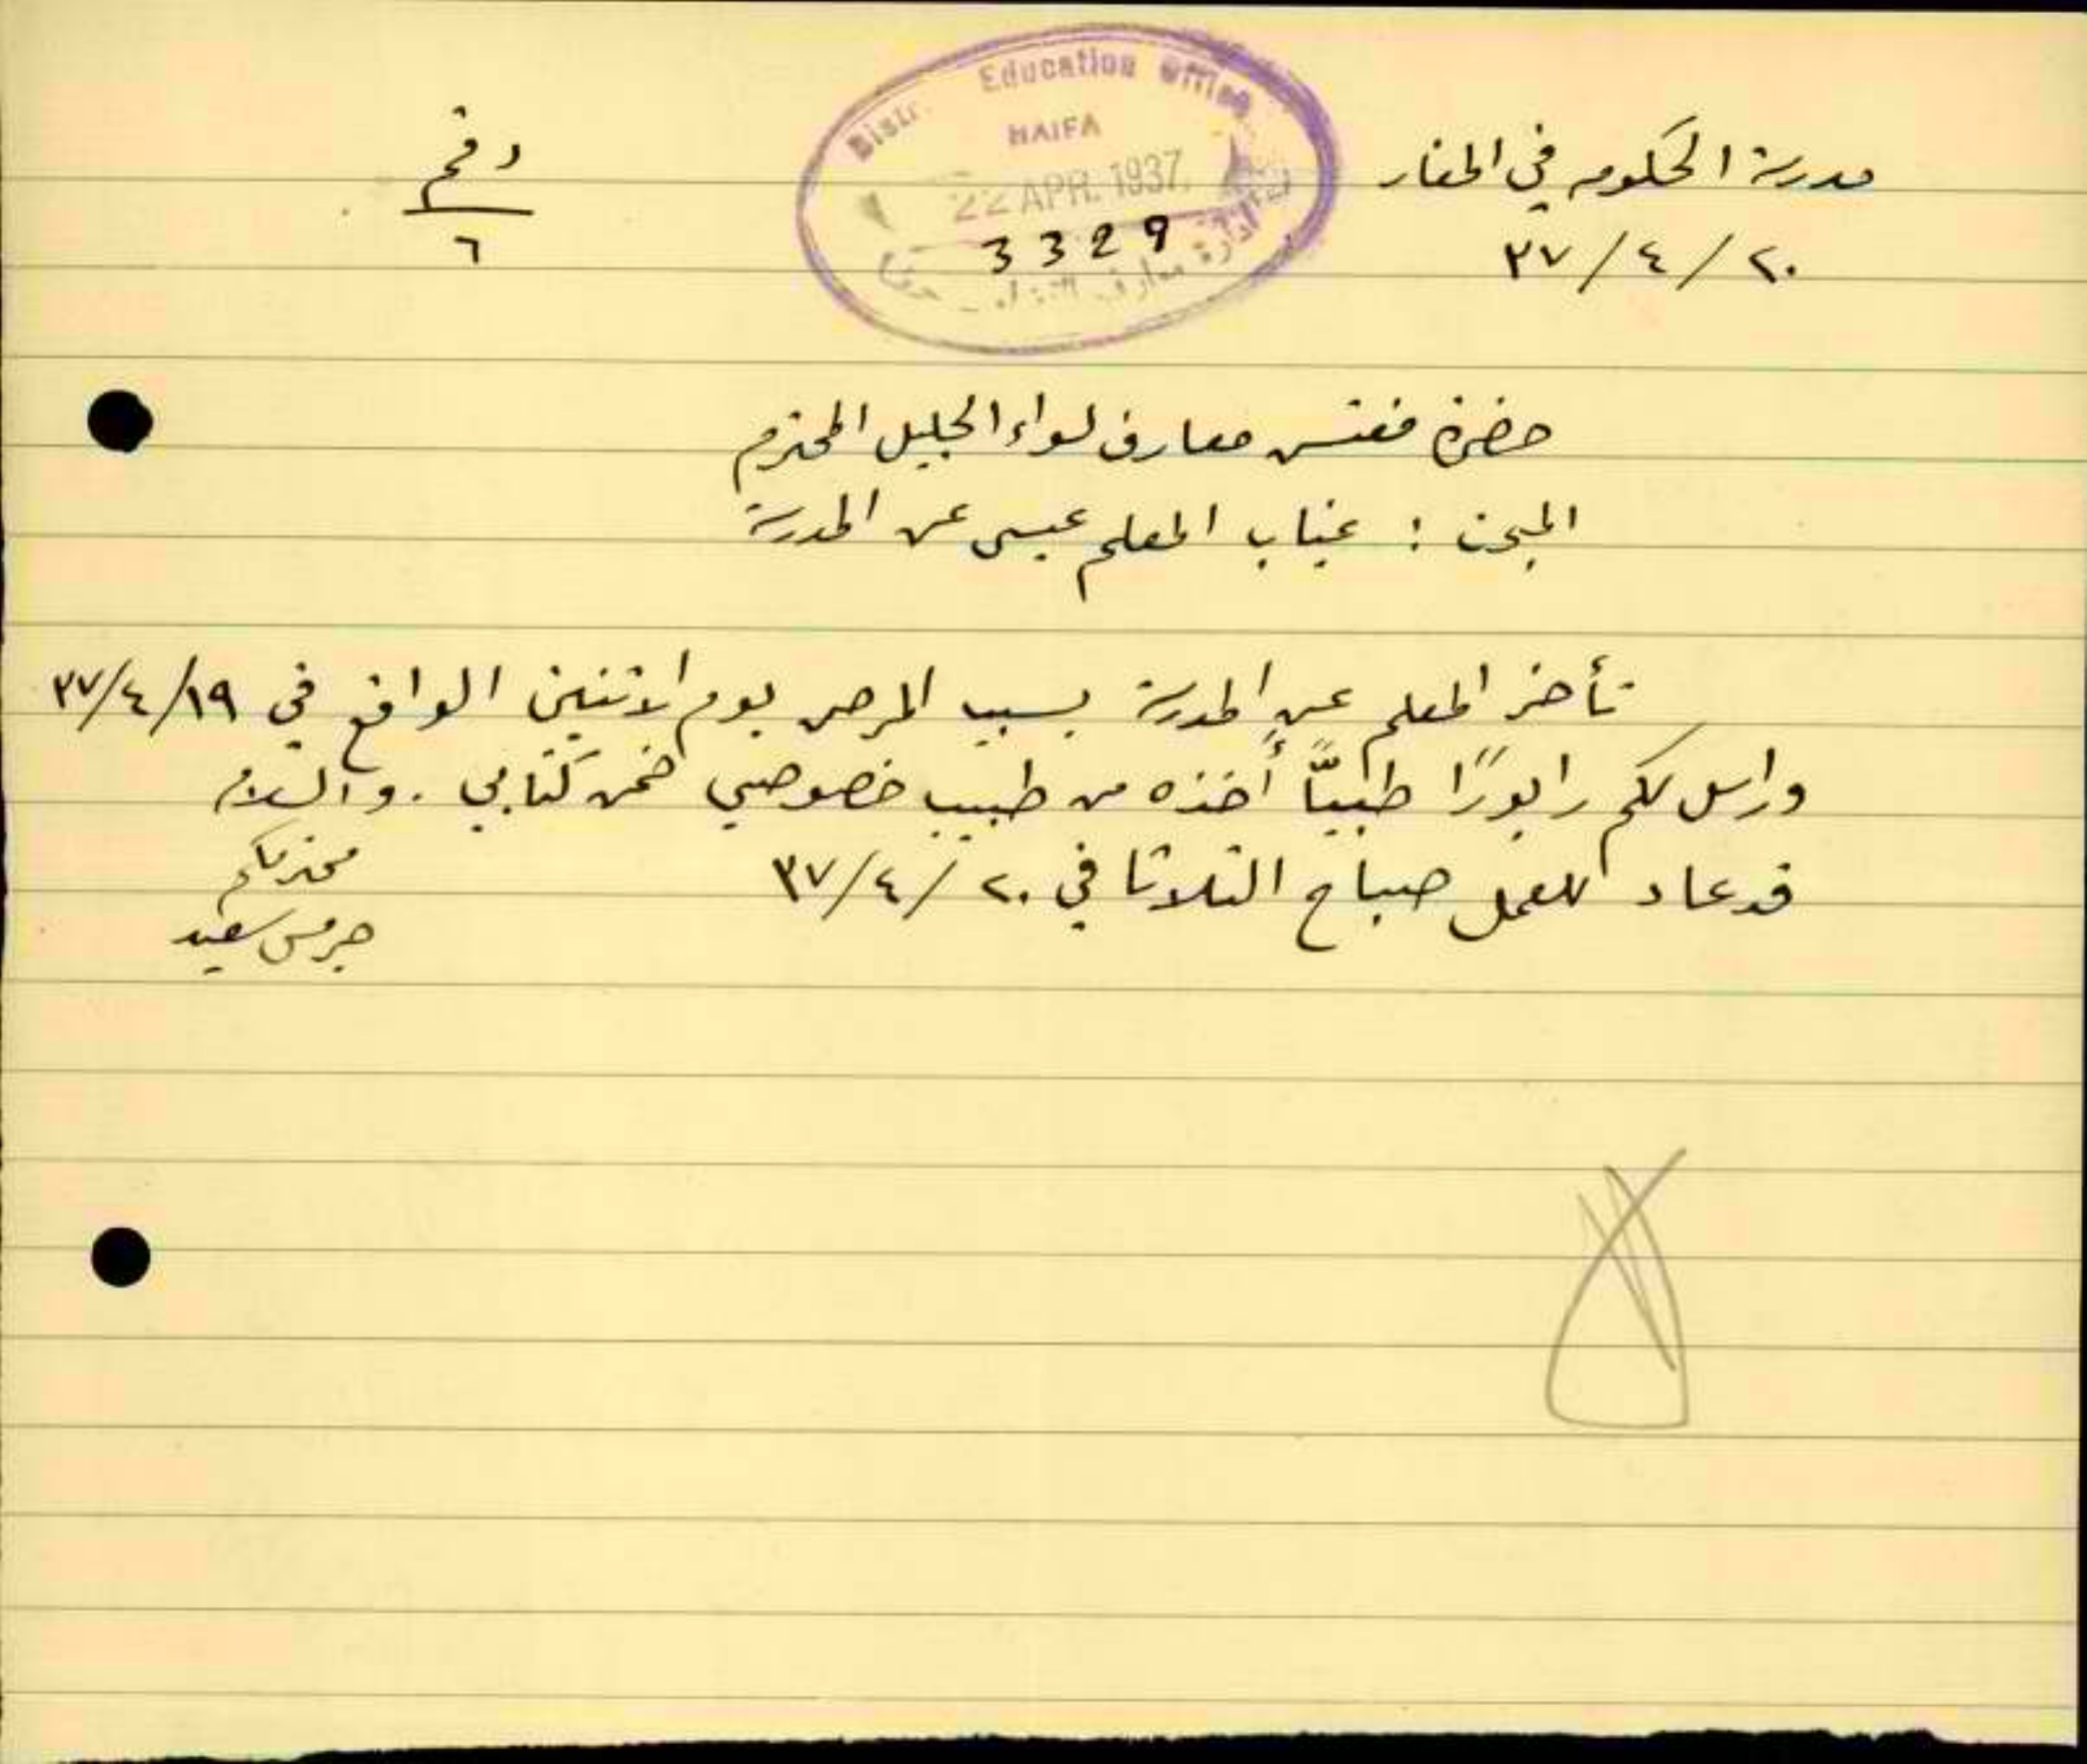 مدرسة الحكومه في المغار
٢٠ / ٤ / ٣٧
رقم
٦
Distr. Education Office
HAIFA
22 APR. 1937
3329
ادارة معارف
حضرة مفتش معارف لواء الجليل المحترم
المبحث : غياب المعلم عيسى عن المدرسة
تأخر المعلم عن المدرسة بسبب المرض يوم الاثنين الواقع في ١٩/٤/٣٧
وارسل لكم رابورًا طبيًّا أخذه من طبيب خصوصي ضمن كتابي . والسلام
قد عاد للعمل صباح الثلاثا في ٢٠ /٤/٣٧
محترمكم
جرجس سعيد